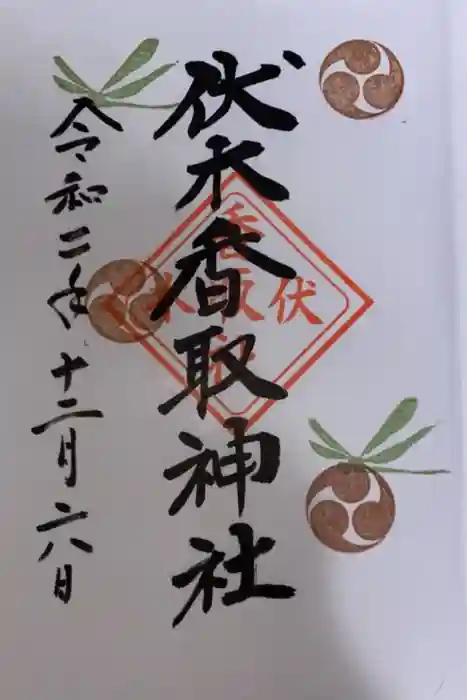 伏木香取神社
令和二年十二月六日
伏木
香取社